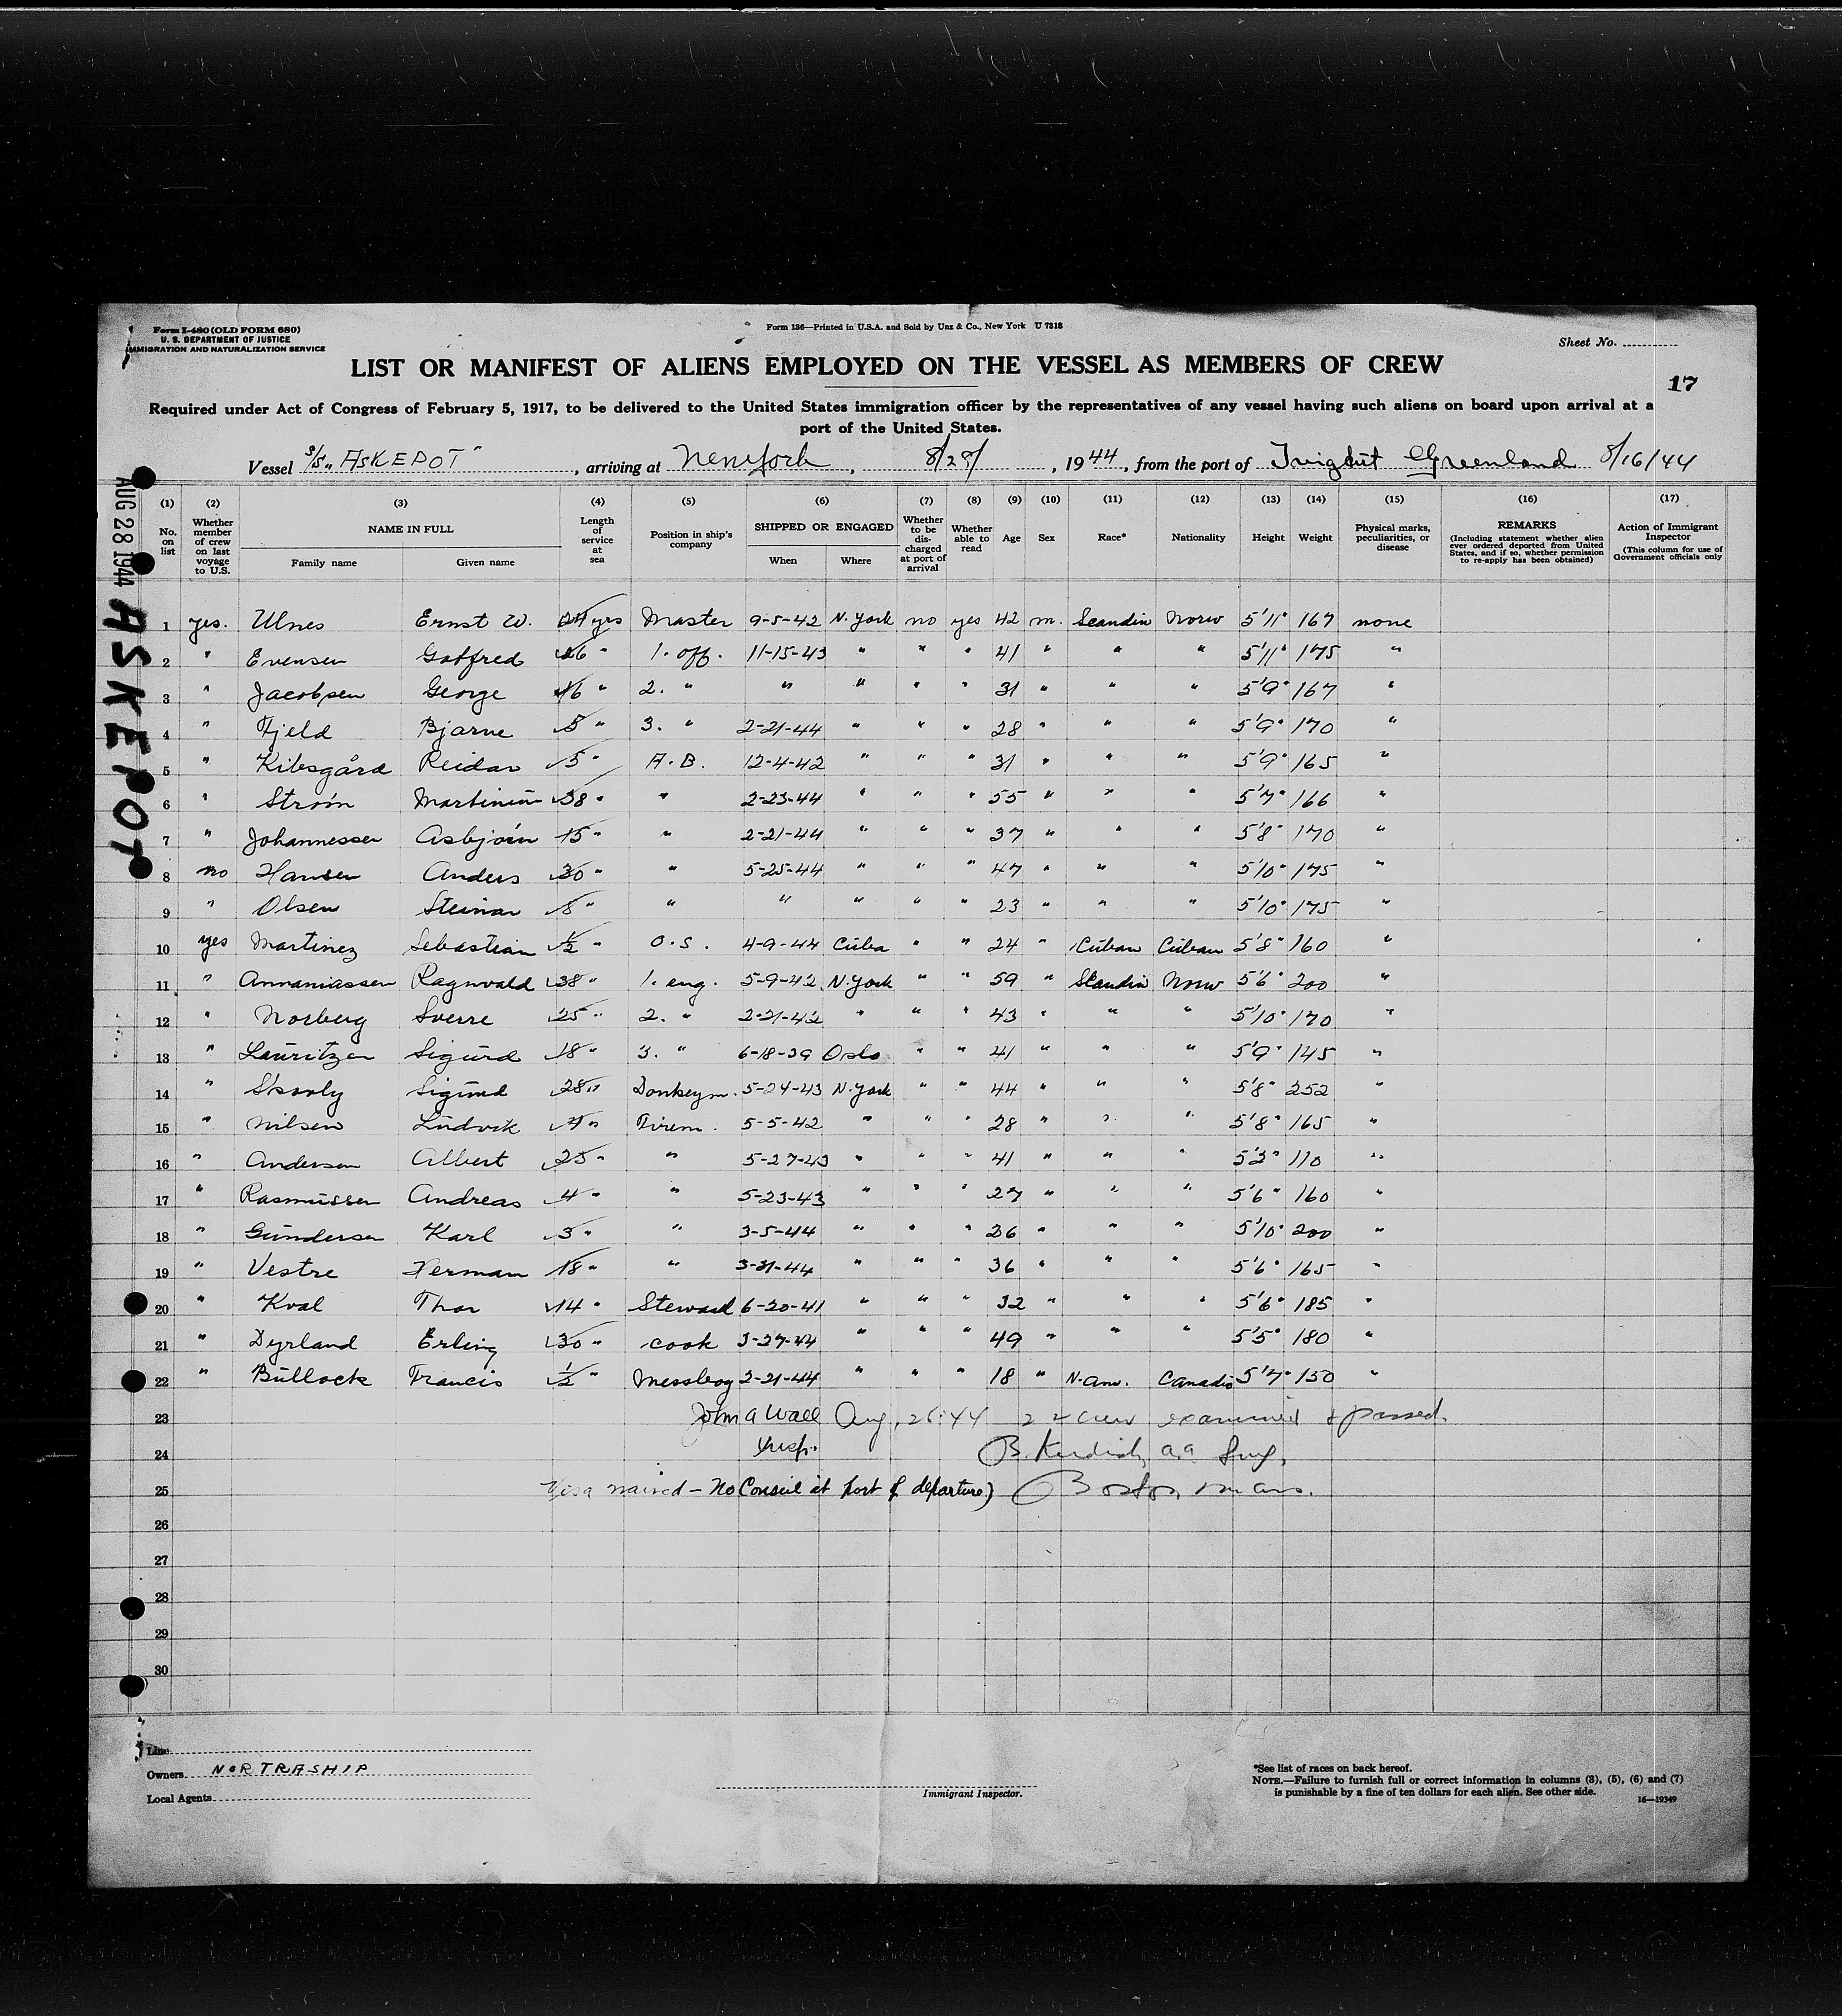 Form I-480 (OLD FORM 680)
U. S. DEPARTMENT OF JUSTICE
IMMIGRATION AND NATURALIZATION SERVICE
Form 136—Printed in U.S.A. and Sold by Unz & Co., New York U 7318
Sheet No.
LIST OR MANIFEST OF ALIENS EMPLOYED ON THE VESSEL AS MEMBERS OF CREW
17
Required under Act of Congress of February 5, 1917, to be delivered to the United States immigration officer by the representatives of any vessel having such aliens on board upon arrival at a
port of the United States.
Vessel S/S "ASKEPOT", arriving at New York, 8/28/, 1944, from the port of Ivigtut Greenland 8/16/44
AUG 28 1944 ASKEPOT
(1) No. on list (2) Whether member of crew on last voyage to U.S. (3) NAME IN FULL Family name Given name (4) Length of service at sea (5) Position in ship's company (6) SHIPPED OR ENGAGED When Where (7) Whether to be discharged at port of arrival (8) Whether able to read (9) Age (10) Sex (11) Race* (12) Nationality (13) Height (14) Weight (15) Physical marks, peculiarities, or disease (16) REMARKS (Including statement whether alien ever ordered deported from United States, and if so, whether permission to re-apply has been obtained) (17) Action of Immigrant Inspector (This column for use of Government officials only
1 yes. Ulnes Ernst W. 24 yrs Master 9-5-42 N. York no yes 42 m. Scandin Norw 5'11" 167 none
2 " Evensen Gotfred 26 " 1. off. 11-15-43 " " " 41 " " " 5'11" 175 "
3 " Jacobsen George 16 " 2. " " " " " 31 " " " 5'9" 167 "
4 " Fjeld Bjarne 5 " 3. " 2-21-44 " " " 28 " " " 5'9" 170 "
5 " Kibsgård Reidar 5 " A.B. 12-4-42 " " " 31 " " " 5'9" 165 "
6 " Strøm 38 " " 2-23-44 " " " 55 " " " 5'7" 166 "
7 " Johannessen Asbjørn 15 " " 2-21-44 " " " 37 " " " 5'8" 170 "
8 no Hansen Anders 30 " " 5-25-44 " " " 47 " " " 5'10" 175 "
9 " Olsen Steinar 8 " " " " " " 23 " " " 5'10" 175 "
10 yes Martinez Sebastian 1/2 " O.S. 4-9-44 Cuba " " 24 " Cuban Cuban 5'8" 160 "
11 " Annaniassen Ragnvald 38 " 1. eng. 5-9-42 N. York " " 59 " Scandin Norw 5'6" 200 "
12 " Norberg Sverre 25 " 2. " 2-21-42 " " " 43 " " " 5'10" 170 "
13 " Lauritzen Sigurd 18 " 3. " 6-18-39 Oslo " " 41 " " " 5'9" 145 "
14 " Sigurd 28 " Donkeym. 5-24-43 N. York " " 44 " " " 5'8" 252 "
15 " Nilsen Ludvik 4 " Firem. 5-5-42 " " " 28 " " " 5'8" 165 "
16 " Andersen Albert 25 " " 5-27-43 " " " 41 " " " 5'3" 110 "
17 " Rasmussen Andreas 4 " " 5-23-43 " " " 27 " " " 5'6" 160 "
18 " Gundersen Karl 3 " " 3-5-44 " " " 26 " " " 5'10" 200 "
19 " Vestre Herman 18 " " 3-31-44 " " " 36 " " " 5'6" 165 "
20 " Kval Thor 14 " Steward 6-20-41 " " " 32 " " " 5'6" 185 "
21 " Dyrland Erling 30 " cook 3-27-44 " " " 49 " " " 5'5" 180 "
22 " Bullock Francis 1/2 " Messboy 2-21-44 " " " 18 " N. am. Canadi 5'7" 150 "
23 John A Wall Aug, 28.44 22 crew examined & passed.
24 Insp. B. a.a Surg.
25 Visa waived - No Consul at port of departure) Boston, Mass.
26
27
28
29
30
Line
Owners NORTRASHIP
Local Agents
Immigrant Inspector.
*See list of races on back hereof.
NOTE.—Failure to furnish full or correct information in columns (3), (5), (6) and (7)
is punishable by a fine of ten dollars for each alien. See other side.
16—19349